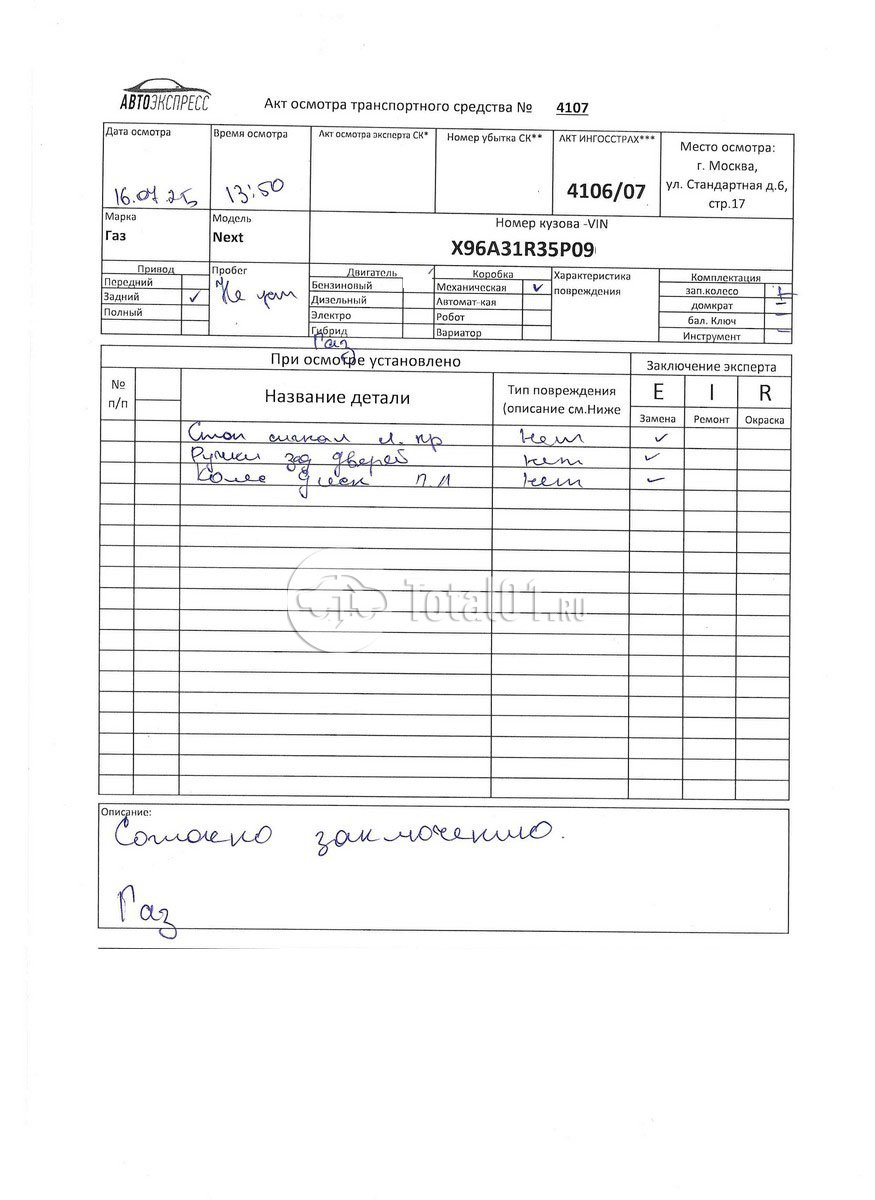 АВТОЭКСПРЕСС
Акт осмотра транспортного средства № 4107
Дата осмотра
Время осмотра
Акт осмотра эксперта СК*
Номер убытка СК**
АКТ ИНГОССТРАХ***
Место осмотра:
г. Москва,
ул. Стандартная д.6,
стр.17
16.07.25
13:50
4106/07
Марка
Модель
Номер кузова -VIN
Газ
Next
X96A31R35P09
Привод
Пробег
Двигатель
Коробка
Характеристика
повреждения
Комплектация
Передний
Бензиновый
Механическая ✓
зап.колесо +
Задний ✓
Не
Дизельный
Автомат-кая
домкрат –
Полный
Электро
Робот
бал. Ключ –
Гибрид
Вариатор
Инструмент –
Газ
При осмотре установлено
Заключение эксперта
№
п/п
Название детали
Тип повреждения
(описание см.Ниже
E I R
Замена Ремонт Окраска
Стоп сигнал л. пр нет ✓
Ручки зад дверей нет ✓
Колес диск П.Л нет ✓
Total01.RU
Описание:
Согласно заключению.
Газ